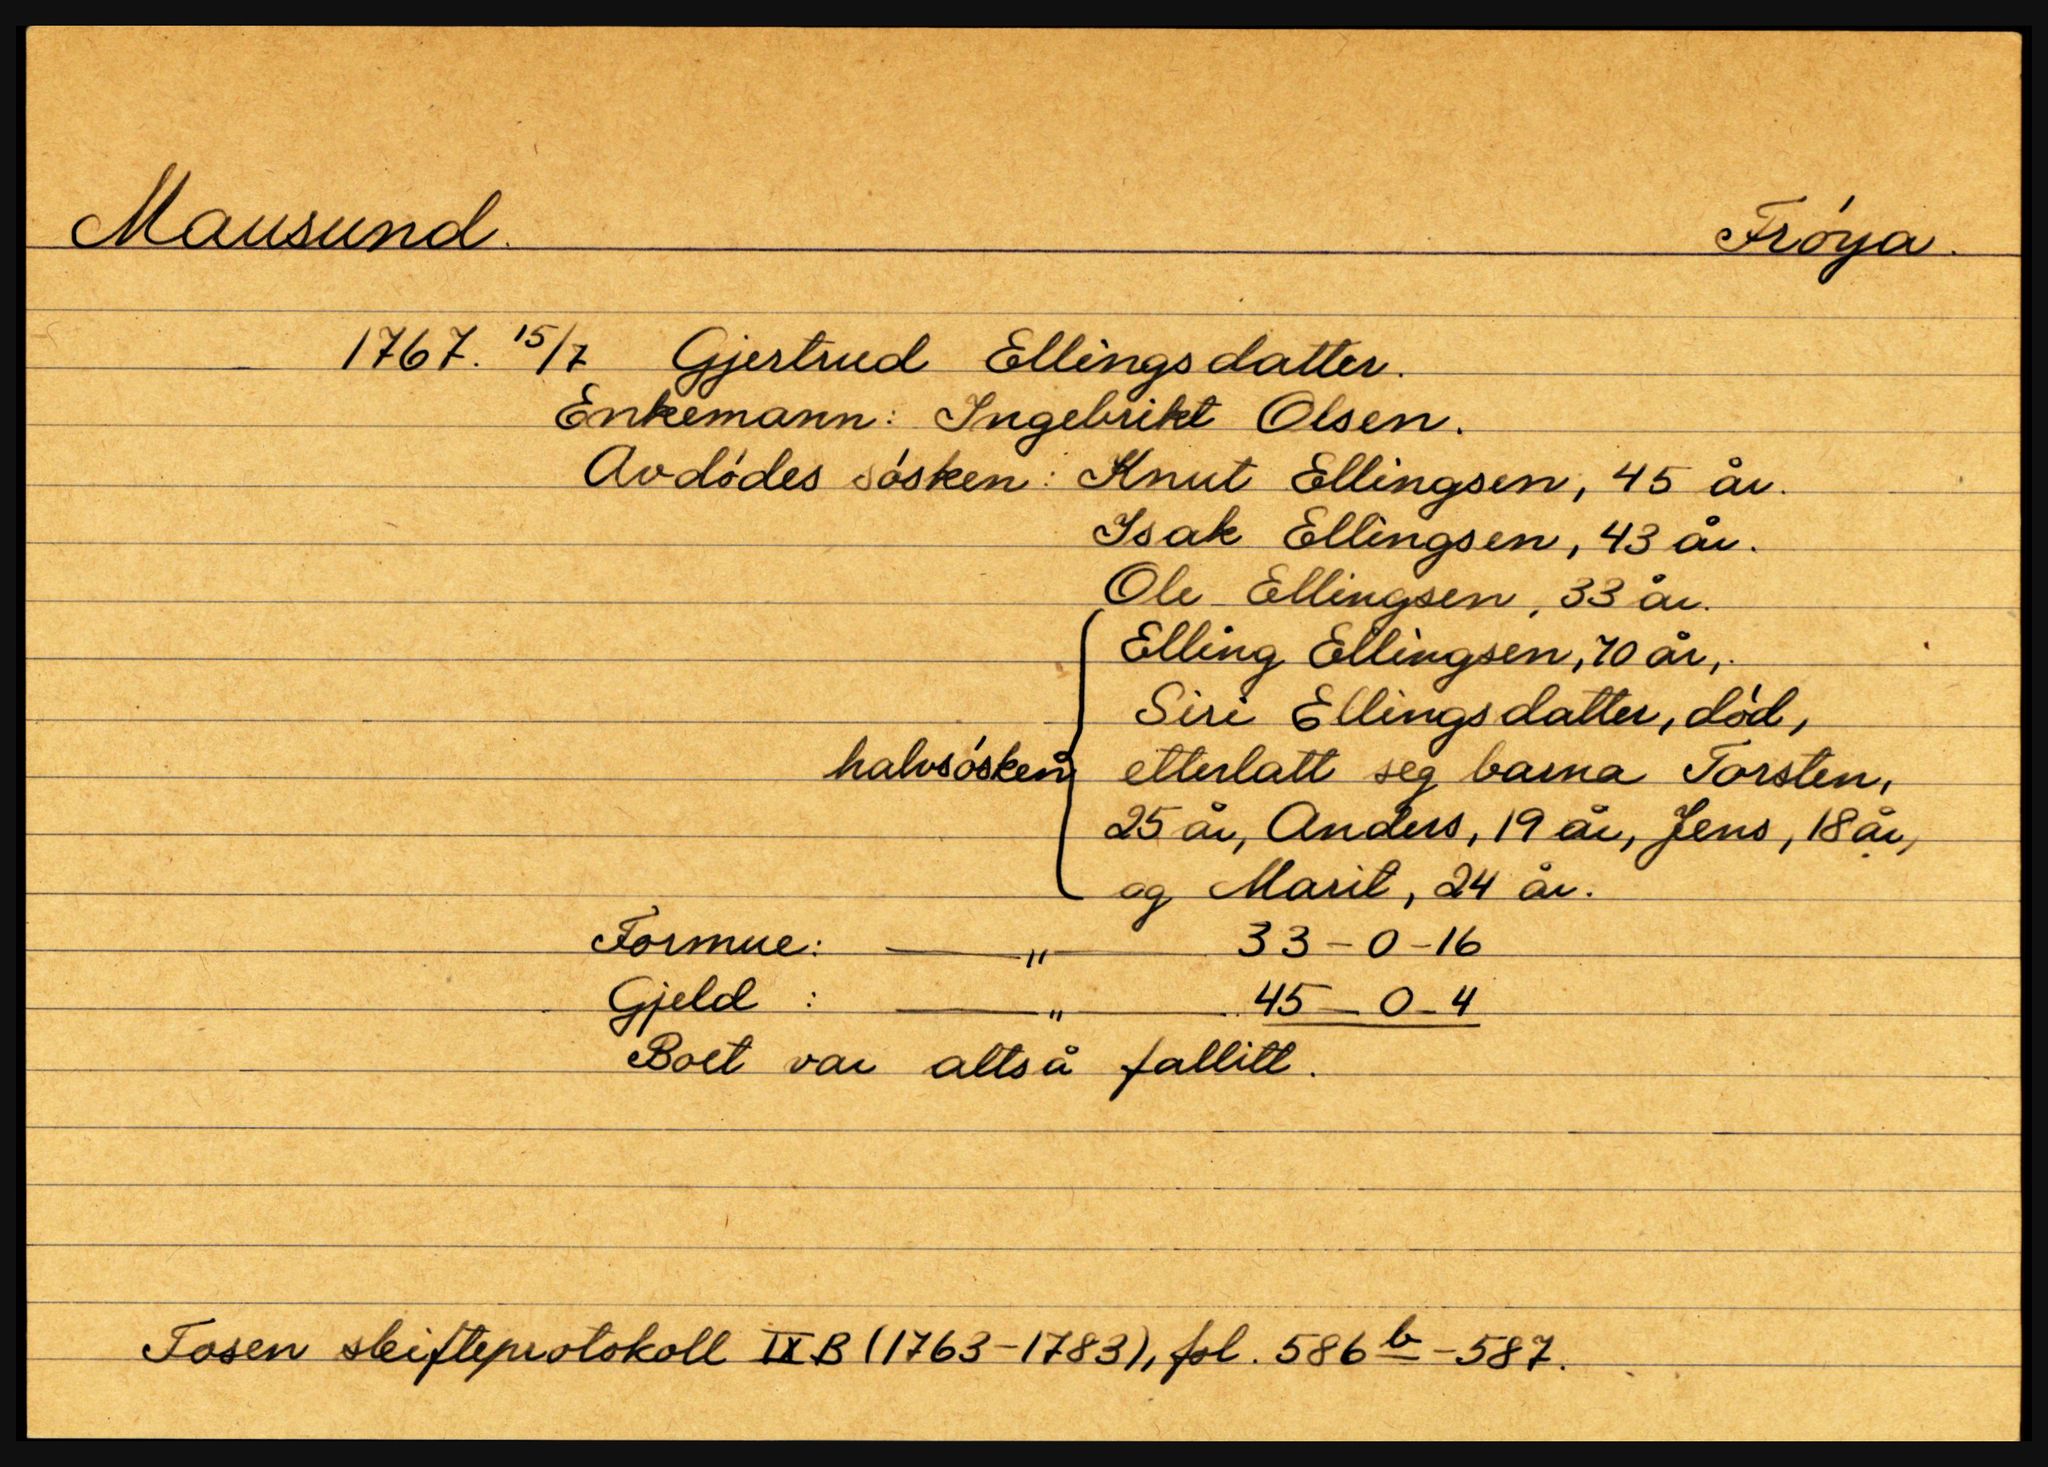 Mausund. Fróya.
1767. 15/7 Gjertrud Ellingsdatter.
Enkemann: Ingebrikt Olsen.
Avdódes sósken: Knut Ellingsen, 45 år.
Isak Ellingsen, 43 år.
Ole Ellingsen, 33 år.
Elling Ellingsen, 70 år,
Siri Ellingsdatter, dód,
halvsósken etterlatt seg barna Torsten,
25 år, Anders, 19 år, Jens, 18 år,
og Marit, 24 år.
Formue: — " — 33-0-16
Gjeld : — " — 45-0-4
Boet var altså fallitt.
Fosen skifteprotokoll IX B (1763-1783), fol. 586 b - 587.